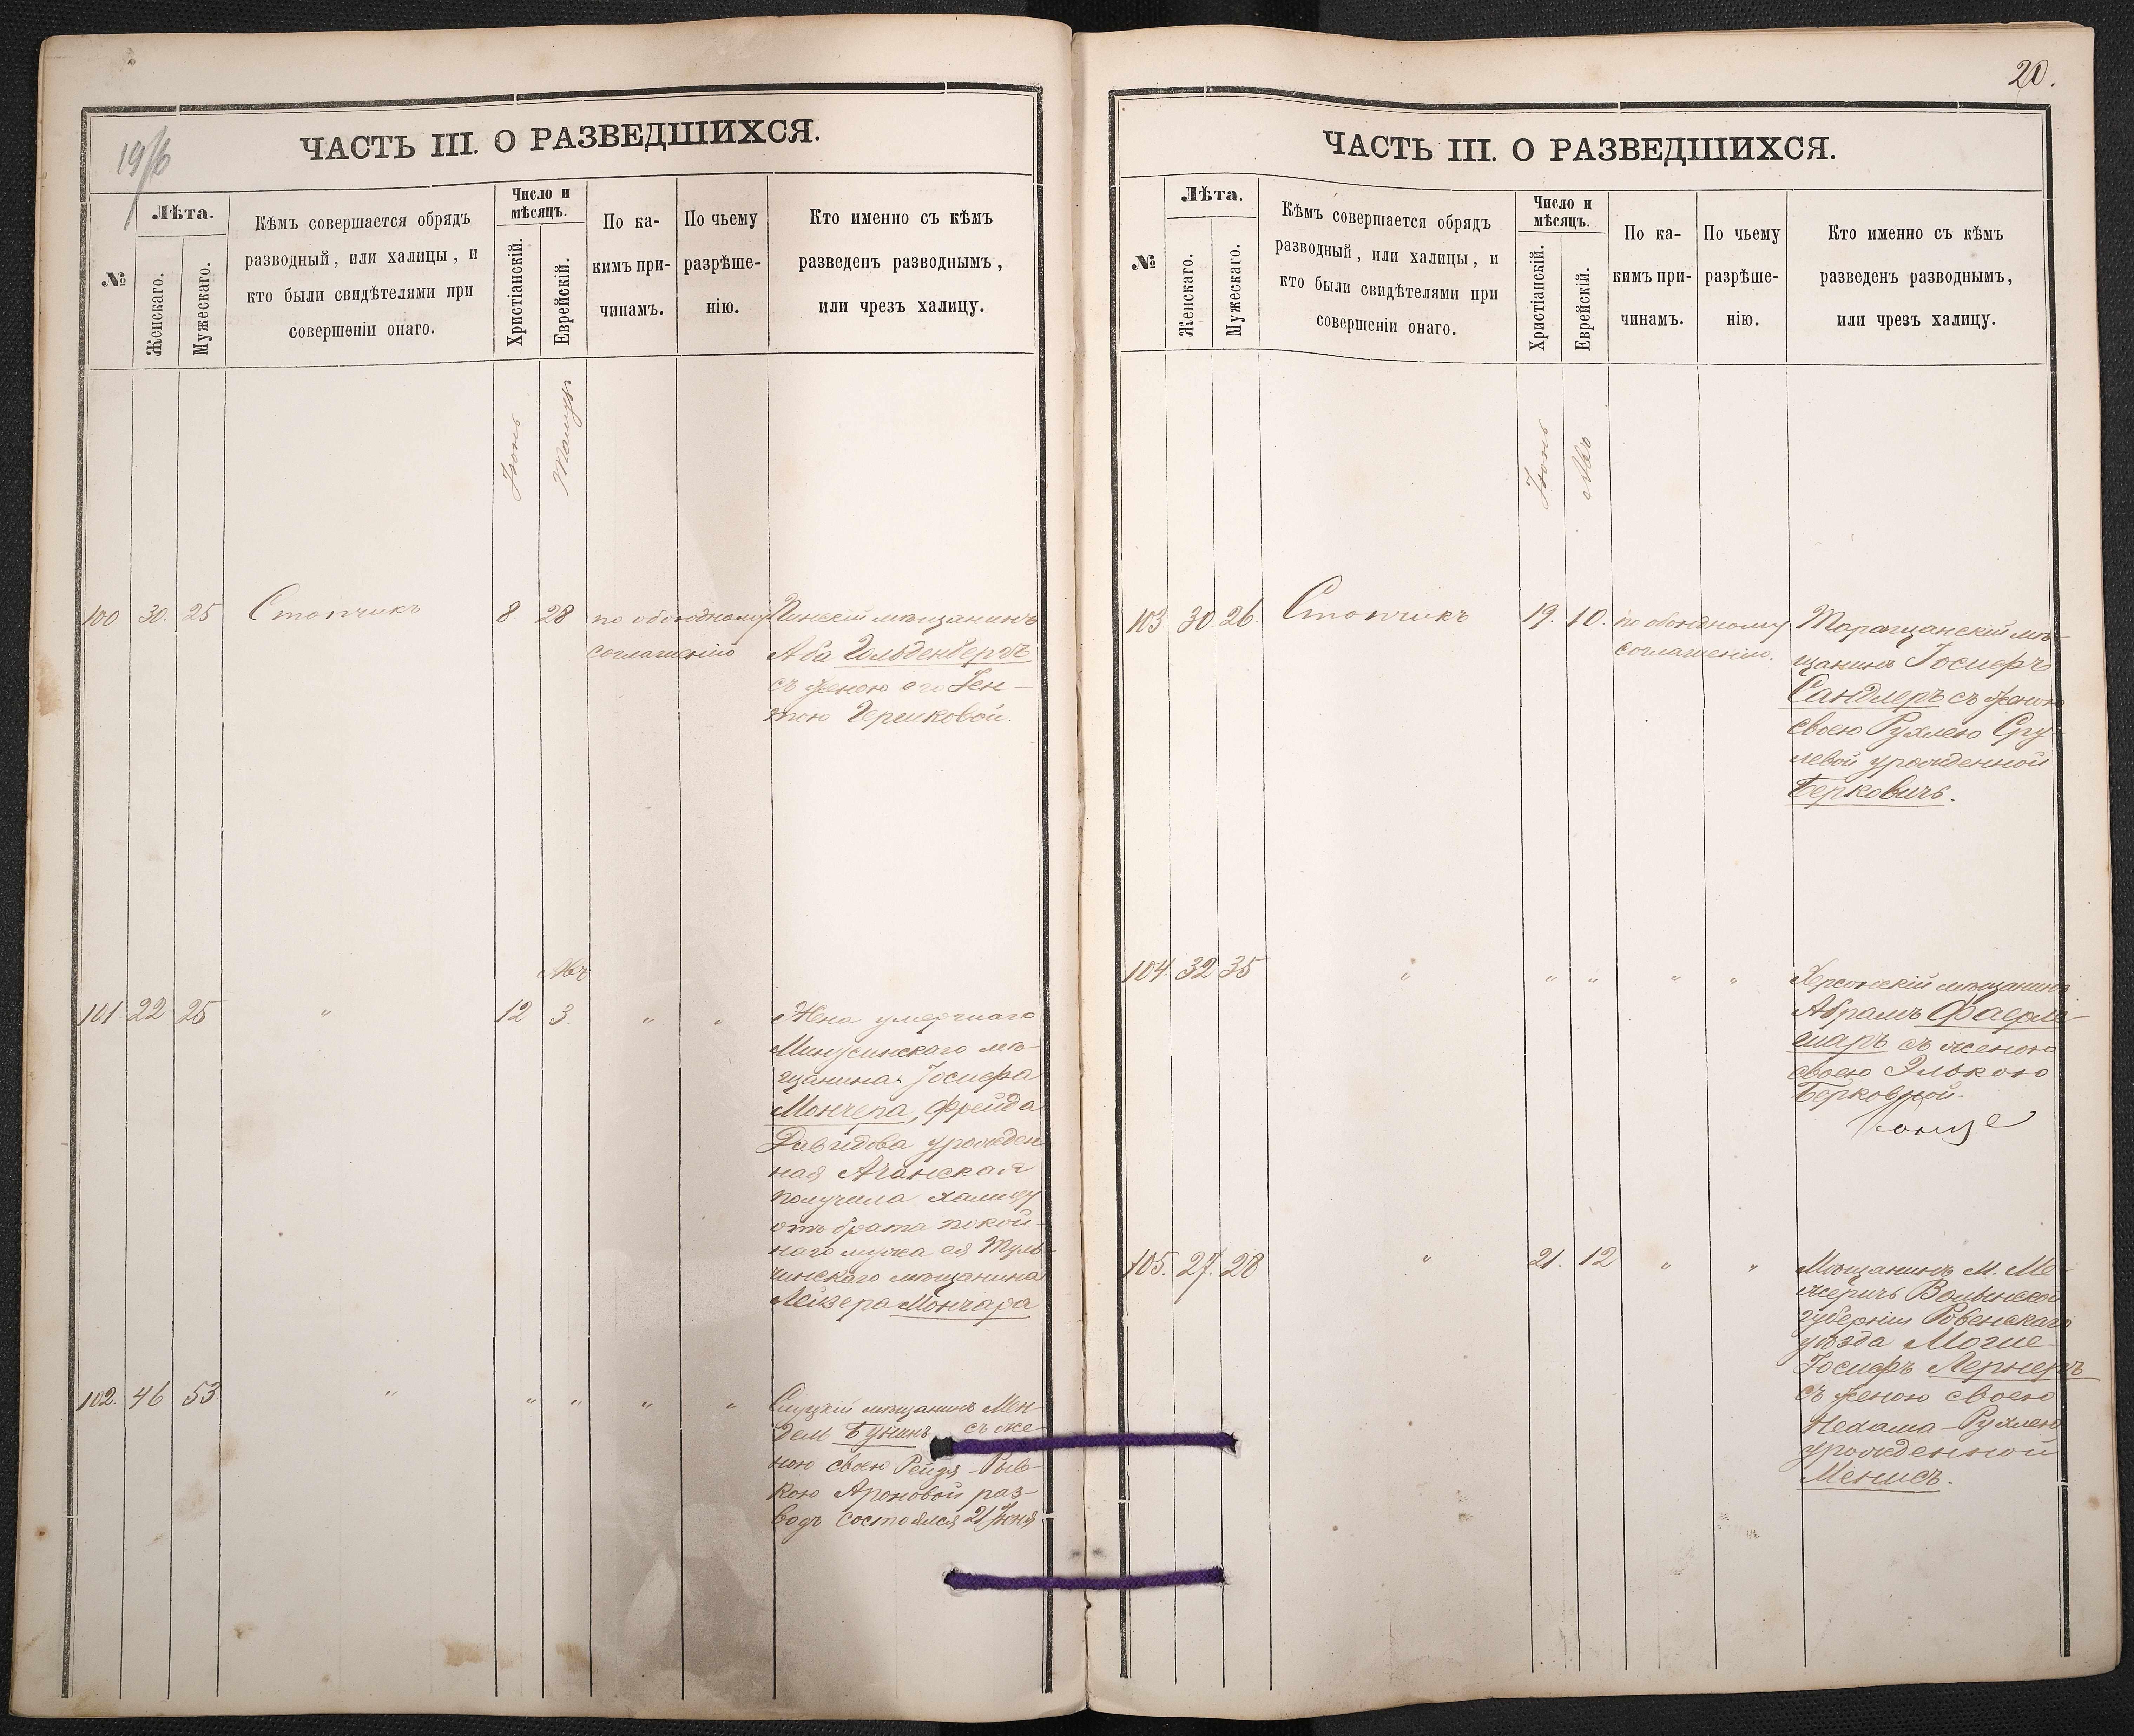 19/6
ЧАСТЬ III. О РАЗВЕДШИХСЯ.
№
Лѣта.
Женскаго.
Мужескаго.
Кѣмъ совершается обрядъ
разводный, или халицы, и
кто были свидѣтелями при
совершеніи онаго.
Число и
мѣсяцъ.
Христіанскій.
Еврейскій.
По ка-
кимъ при-
чинамъ.
По чьему
разрѣше-
нію.
Кто именно съ кѣмъ
разведенъ разводнымъ,
или чрезъ халицу.
Іюнь
Тамузъ
100 30. 25 Стопчикъ 8 28 по обоюдному
соглашенію
Пинскій мѣщанинъ
Аба Гольденбергъ
съ женою его Ген-
тою Гершковой.
Авъ
101. 22 25 " 12 3. " "
Жена умершаго
Минусинскаго мѣ-
щанина Іосифа
Мончера, Фрейда
Давидова урожден-
ная Ачанская
получила халицу
отъ брата покой-
наго мужа ея Туль-
чинскаго мѣщанина
Лейзера Мончара
102. 46 53 " " " " "
Слуцкій мѣщанинъ Мен-
дель Бунинъ съ же-
ною своею Рейзя-Рыв-
кою Ароновой раз-
водъ состоялся 21 Іюня
20.
ЧАСТЬ III. О РАЗВЕДШИХСЯ.
№
Лѣта.
Женскаго.
Мужескаго.
Кѣмъ совершается обрядъ
разводный, или халицы, и
кто были свидѣтелями при
совершеніи онаго.
Число и
мѣсяцъ.
Христіанскій.
Еврейскій.
По ка-
кимъ при-
чинамъ.
По чьему
разрѣше-
нію.
Кто именно съ кѣмъ
разведенъ разводнымъ,
или чрезъ халицу.
Іюнь
Авъ
103 30 26. Стопчикъ 19. 10. по обоюдному
соглашенію.
Таращанскій мѣ-
щанинъ Іосифъ
Сандлеръ съ женою
своею Рухлею Сру-
левой урожденной
Берковичъ.
104. 32 35 " " " " "
Херсонскій мѣщанинъ
Абрамъ Фаерме-
шаръ съ женою
своею Элькою
Берковной.
105. 27. 28 " 21. 12 " "
Мѣщанинъ м. Ме-
жеричъ Волынской
губерніи Ровенскаго
уѣзда Мошe-
Іосифъ Лернеръ
съ женою своею
Нехама-Рухлею
урожденной
Менисъ.